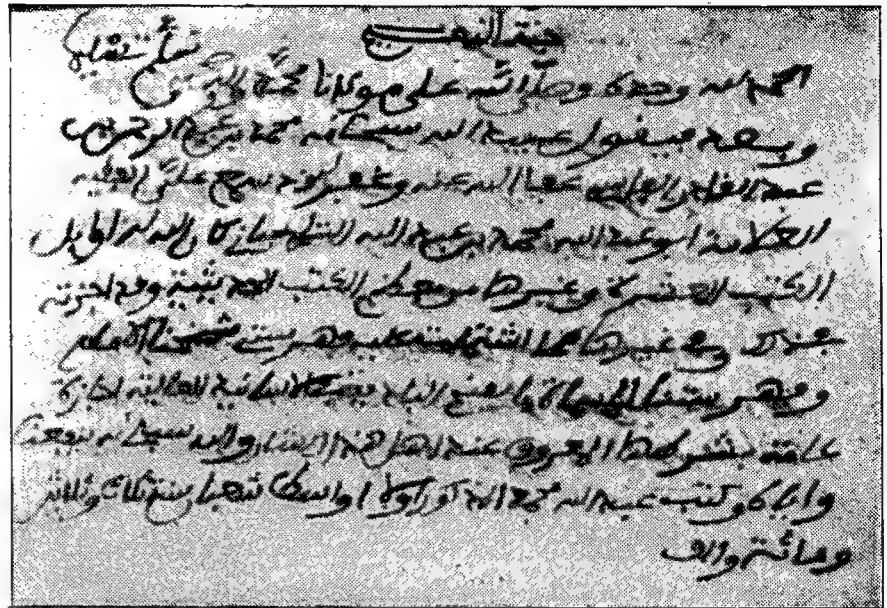 الحمد لله وحده وصلى الله على مولانا محمد وءاله
وبعد فيقول عبيد الله سبحانه محمد بن عبد الرحمن بن
عبد القادر الفاسي عفا الله عنه وغفر له قد سمع علي الفقيه
العلامة ابو عبد الله محمد بن عبد الله كان الله له اوايل
الكتب العشرة وغيرها من معظم الكتب الحديثية وقد اجزته
بذلك وفي غيرها مما اشتملت عليه فهرست شيخنا الامام
وفهرستنا المسماة بالمنح البادية في الاسانيد العالية اجازة
عامة بشرطها المعروف عند اهل هذا الشان والله سبحانه ينفعنا
واياه وكتب عبد الله محمد المذكور اولا اواسط شعبان سنة ثلاث وثلاثين
ومائة والف